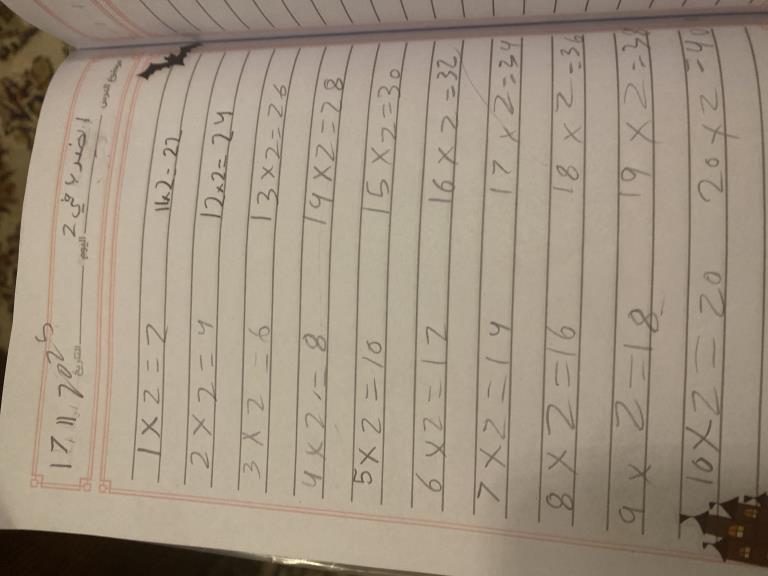 موضوع الدرس الضرب في 2 اليوم التاريخ 17.11.2025
1 x 2 = 2 11x2 = 22
2 x 2 = 4 12x2 = 24
3 x 2 = 6 13 x 2 = 26
4 x 2 = 8 14 x 2 = 28
5 x 2 = 10 15 x 2 = 30
6 x 2 = 12 16 x 2 = 32
7 x 2 = 14 17 x 2 = 34
8 x 2 = 16 18 x 2 = 36
9 x 2 = 18 19 x 2 = 38
10 x 2 = 20 20 x 2 = 40